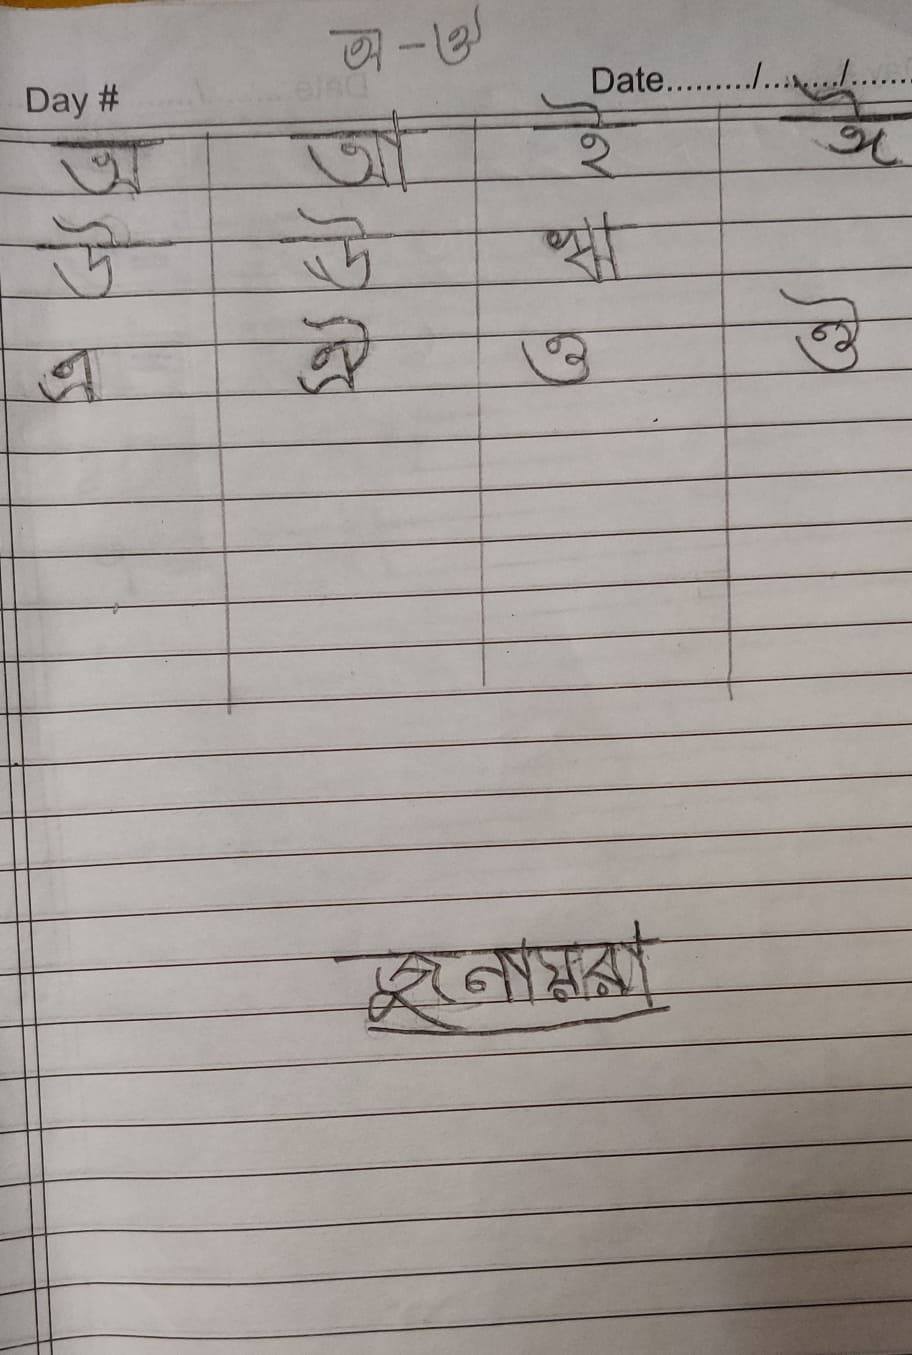 অ - ঔ
Day # Date........./........./.......
অ আ ই ঈ
উ ঊ ঋ
এ ঐ ও ঔ
জুনায়রা